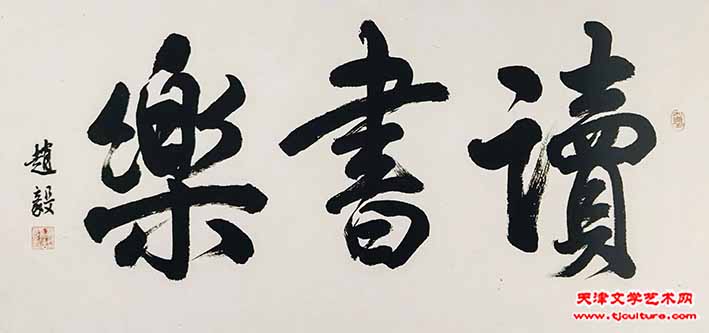 讀書樂
趙毅
天津文学艺术网
www.tjculture.com